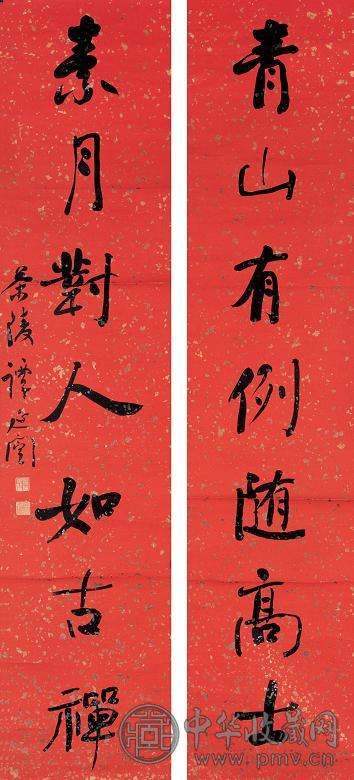 青山有例随高士
素月對人如古禪
茶陵譚延闓
中华收藏网
www.pmv.cn